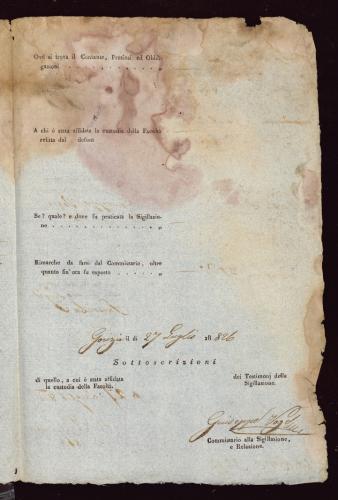 Ove si trova il Contante, Preziosi ed Obbli-
gazioni . . . . . . . . . . „
A chi è stata affidata la custodia della Facoltà
relitta dal defont
Se? quale? e dove fu praticata la Sigillazio-
ne . . . . . . . . . . . . „
Rimarche da farsi dal Commissario, oltre
quanto fin'ora fu esposto . . . . . . „
Gorizia il dì 27 Luglio 18 826
Sottoscrizioni
di quello, a cui è stata affidata
la custodia della Facoltà.
dei Testimonj della
Sigillazione.
Giuseppe
Commissario alla Sigillazione,
e Relazione.